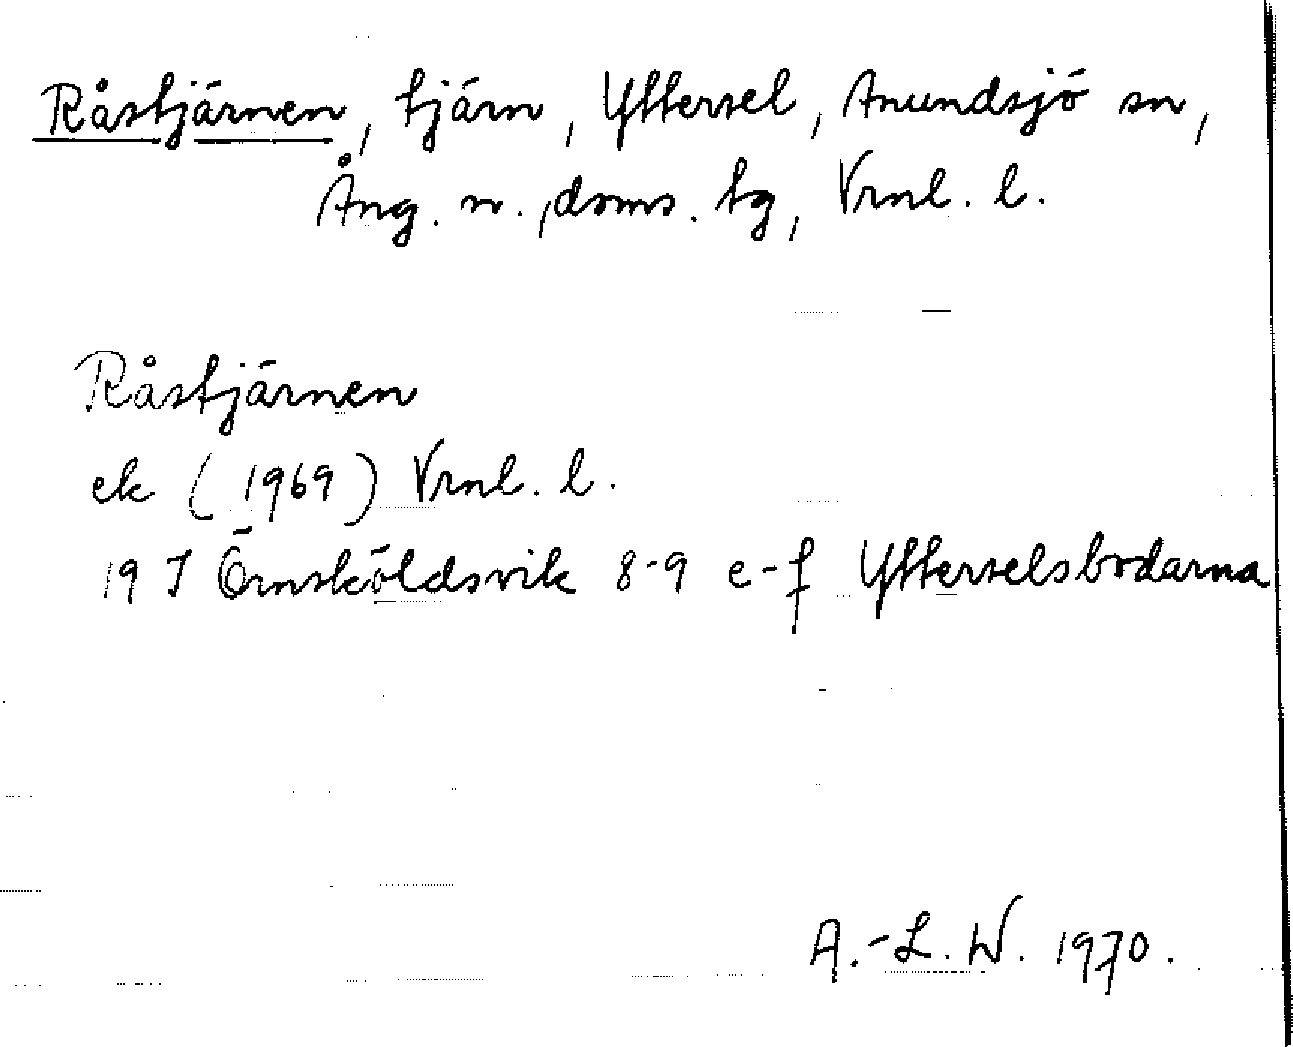 Råstjärnen, tjärn, Yttersel, Anundsjö sn,
Ång. n., doms. tg, Vrnl. l.
Råstjärnen
ek (1969) Vrnl. l.
19 I Örnsköldsvik 8-9 e-f Ytterselsbodarna
A.-L. W. 1970.